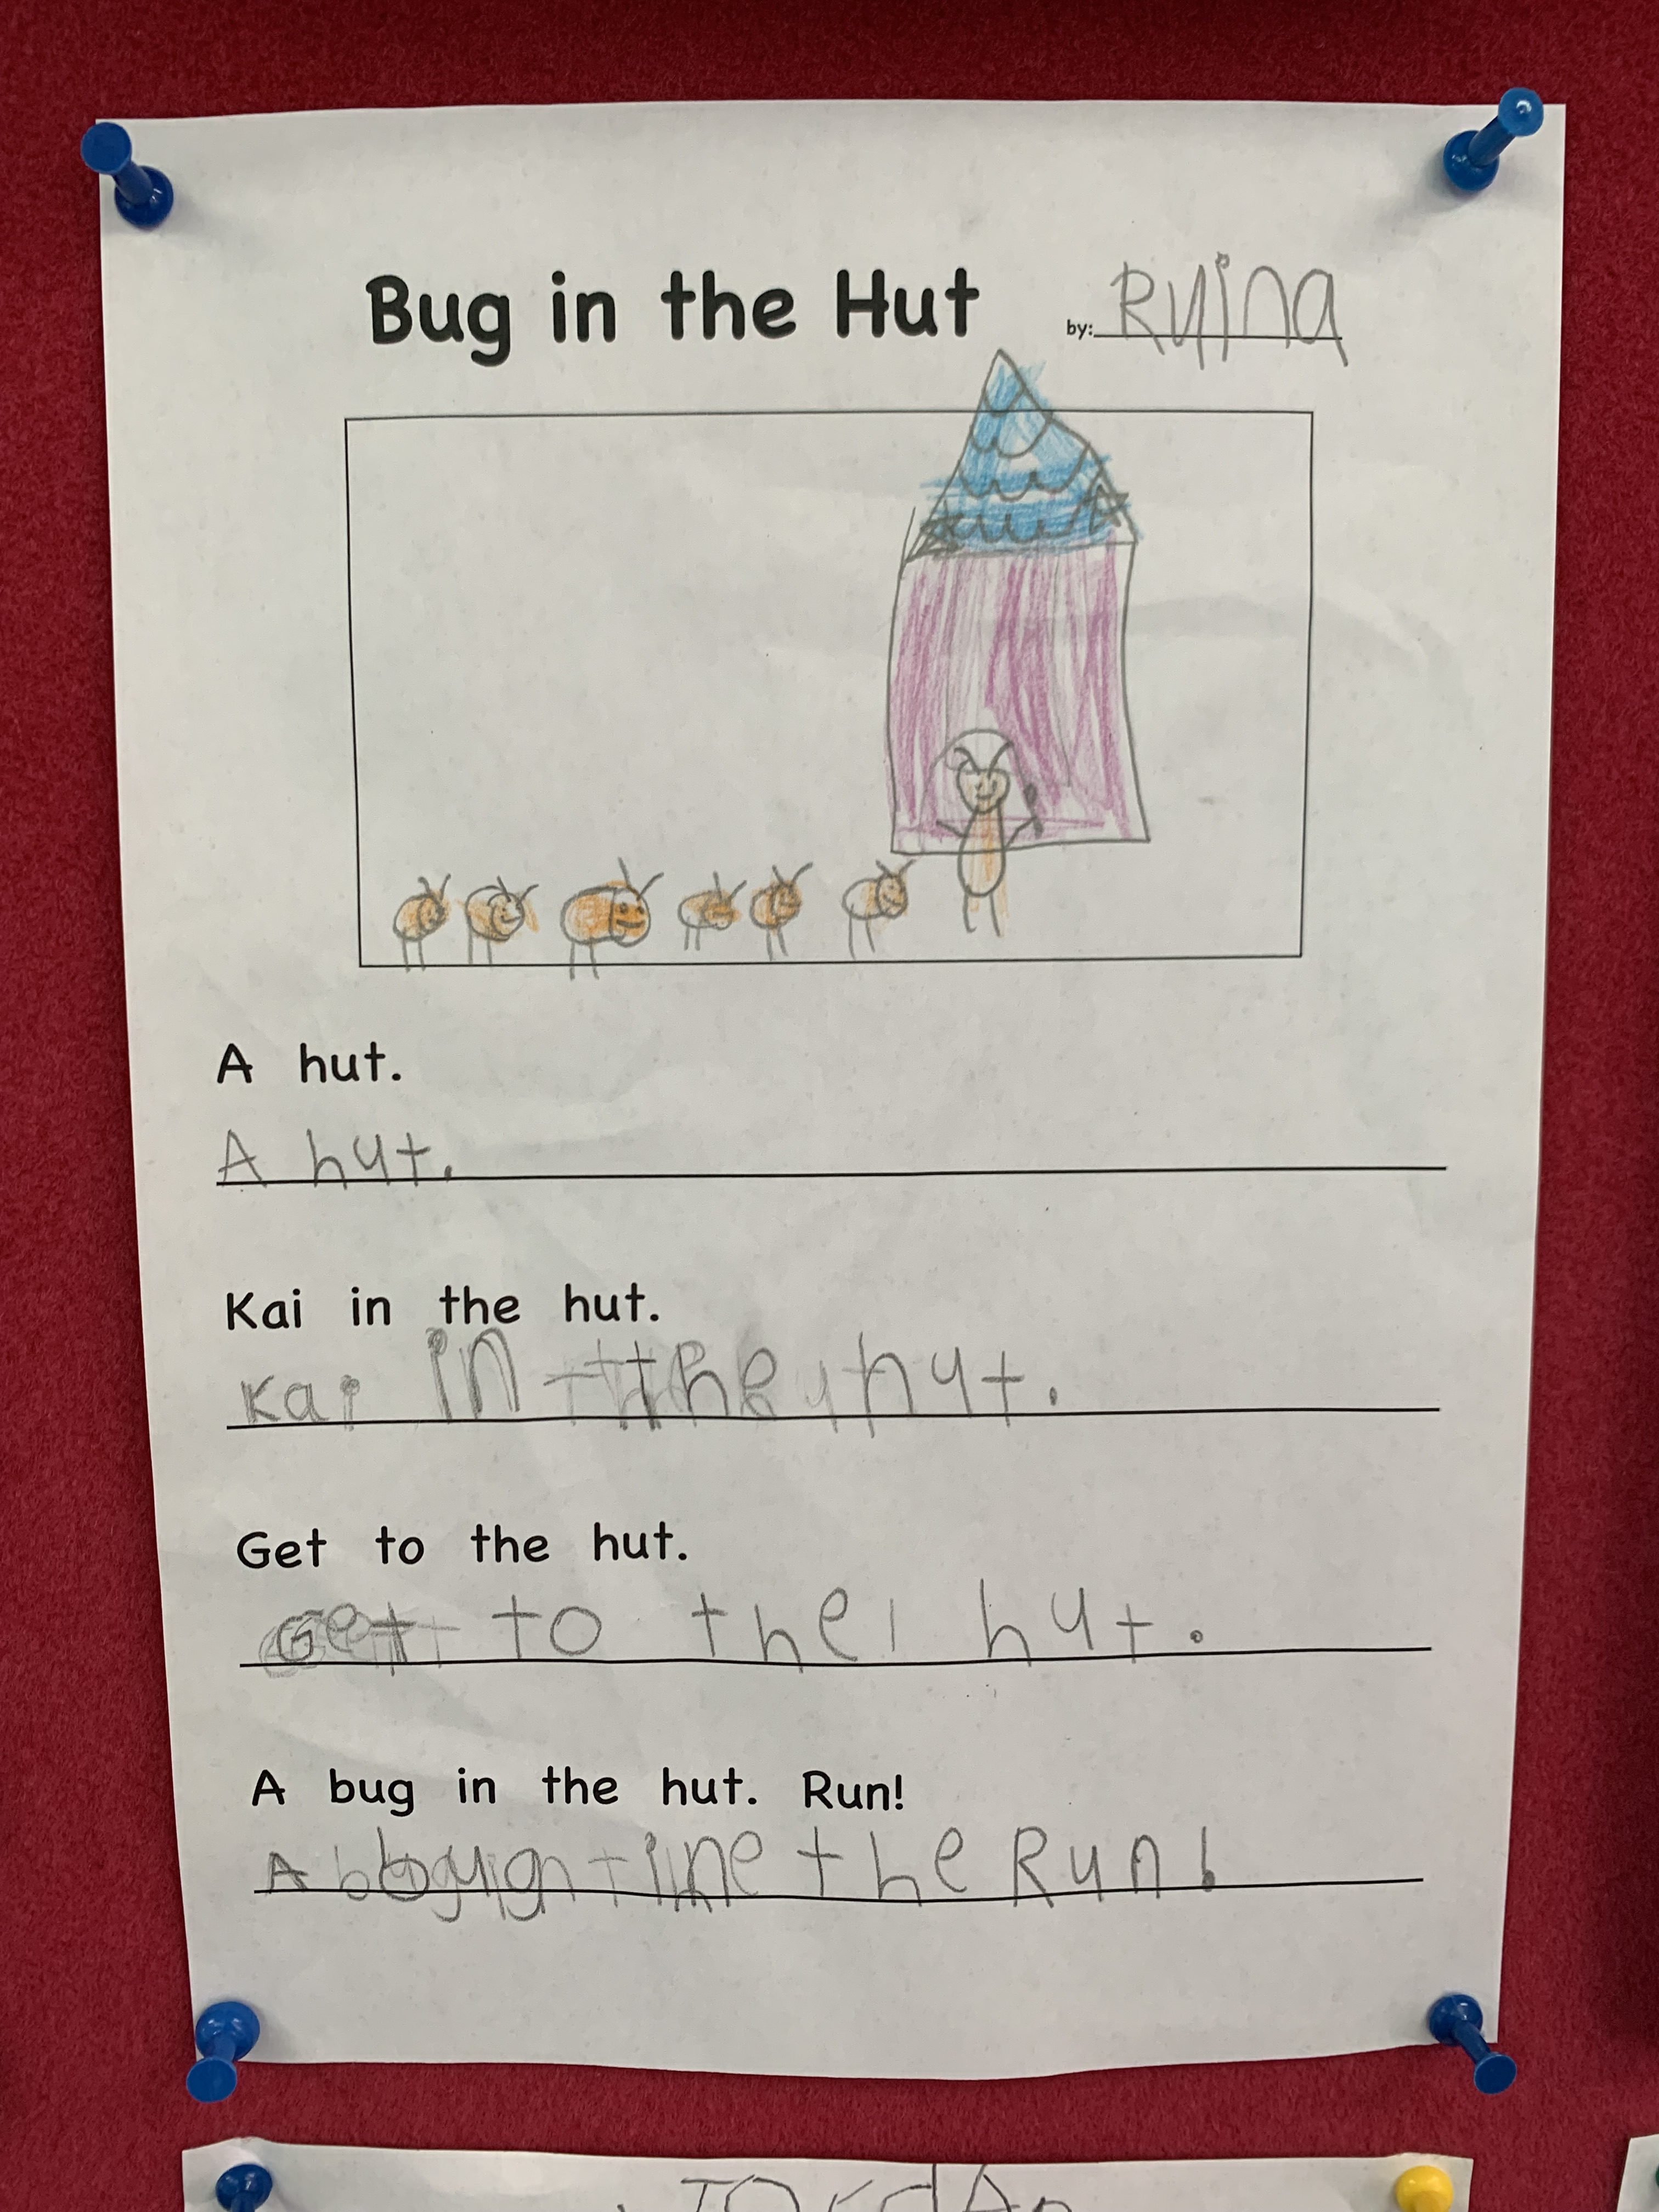 Bug in the Hut by: Ryina
A hut.
A hut.
Kai in the hut.
Kai in the hut.
Get to the hut.
Get to the hut.
A bug in the hut. Run!
A bug in the Run!
JordAn